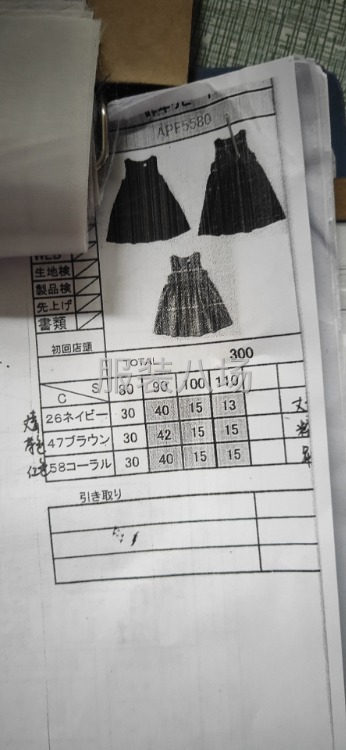 APF5580
生地検
製品検
先上げ
書類
初回店頭
TOTAL 300
S
C 80 90 100 110
26ネイビー 30 40 15 13
47ブラウン 30 42 15 15
58コーラル 30 40 15 15
引き取り
服装八场